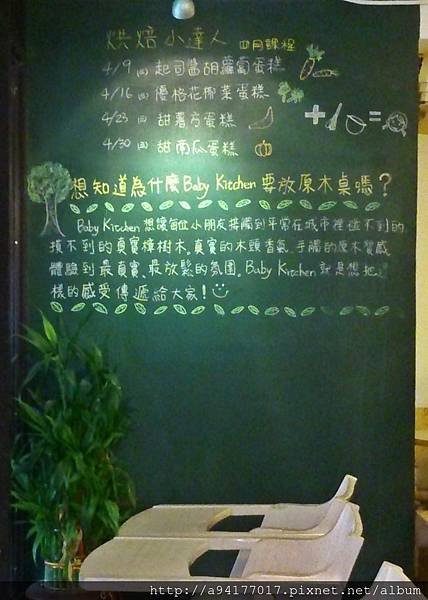 烘焙小達人 四月課程
4/9 四 起司醬胡蘿蔔蛋糕
4/16 四 優格花椰菜蛋糕
4/23 四 甜薯方蛋糕
4/30 四 甜南瓜蛋糕
想知道為什麼Baby Kitchen要放原木桌嗎？
Baby Kitchen 想讓每位小朋友接觸到平常在城市裡碰不到的,
摸不到的真實樟樹木,真實的木頭香氣.手觸的原木質感,
體驗到最真實、最放鬆的氛圍,Baby Kitchen就是想把這
樣的感受傳遞給大家！
http://a94177017.pixnet.net/album